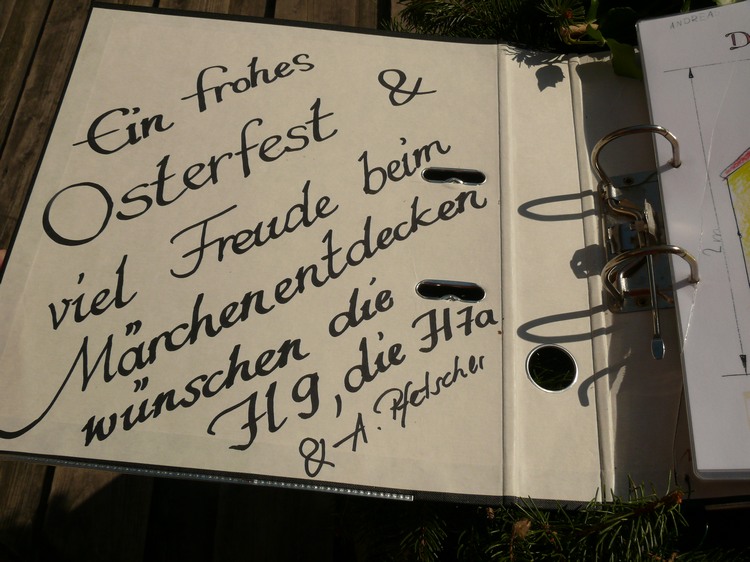 Ein frohes
Osterfest &
viel Freude beim
Märchenentdecken
wünschen die
H9, die H7a
& A. Pfetscher
ANDREA
D
2m